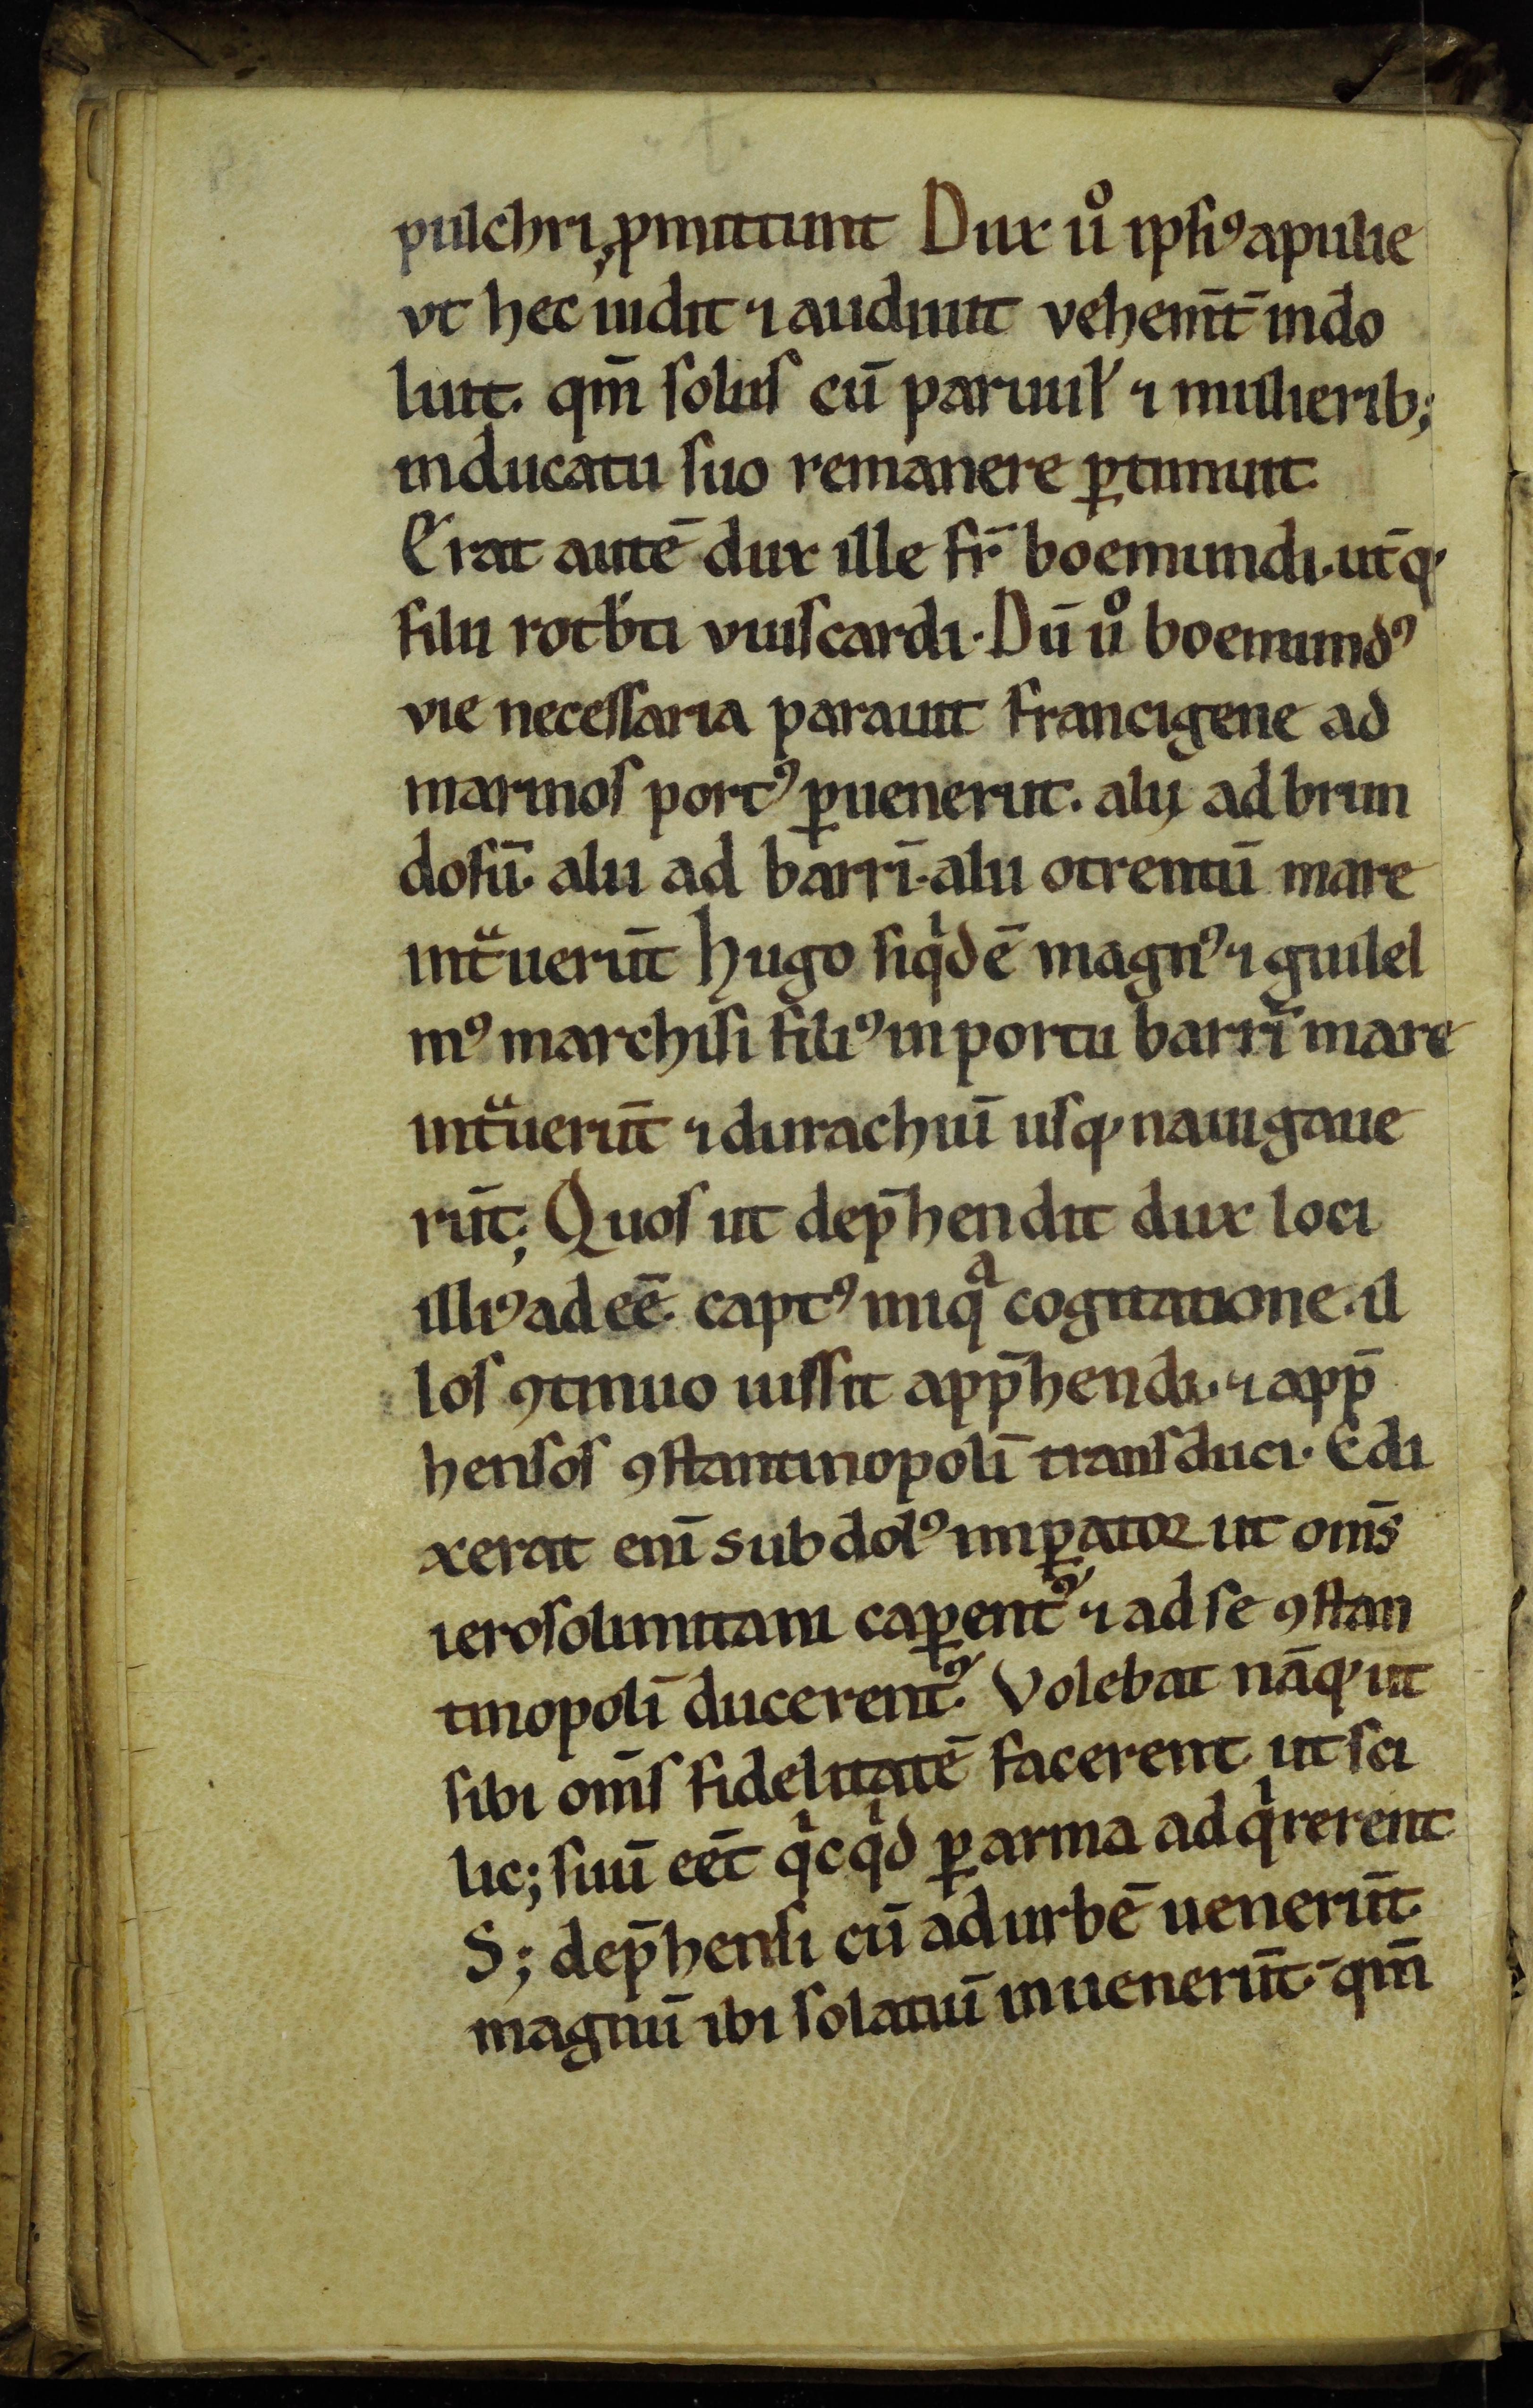 pulchri, ꝓmittunt Dux u͛o ipſiꝰ apulie
vt hec uidit ⁊ audiuit vehem̄t̄ indo
luit. qm̄ ſolus cū paruul' ⁊ mulierib;
in ducatu ſuo remanere ꝑtimuit.
Erat autē dux ille fr̄ boemundi. ut̄q;
filii rotb'ti vuiſcardi. Dū uͦ boemundꝰ
vie neceſſaria parauit francigene ad
marinoſ portꝰ ꝑuenerut. alij ad brun
doſiū. alii ad barrī. alii otrentū mare
intͣuerūt hugo ſiqͥdē magnꝰ ⁊ guilel
mꝰ marchiſi filiꝰ in portu barrī mare
intͣuerūt ⁊ durachiuī uſq; nauigaue
rūt; Quoſ ut dep̄hendit dux loci
illiꝰ adeē. captꝰ iniqͣ cogitatione. il
loſ ꝯtinuo iuſſit app̄hendi. ⁊ app̄
henſos ꝯſtantinopolī tranſduci. Edi
xerat enī subdolꝰ imꝑator ut om̄s
ieroſolimitani caꝑentᷣ ⁊ ad ſe ꝯſtan
tinopolī ducerentᷣ. Volebat nāq; ut
ſibi om̄ſ fidelitatē facerent ut ſci
lic; ſuū eēt qͥcqͥd ꝑ arma adqͥrerent
S; dep̄henſi cū ad urbē uenerūt.
magnū ibi ſolatiū inuenerūt. qm̄